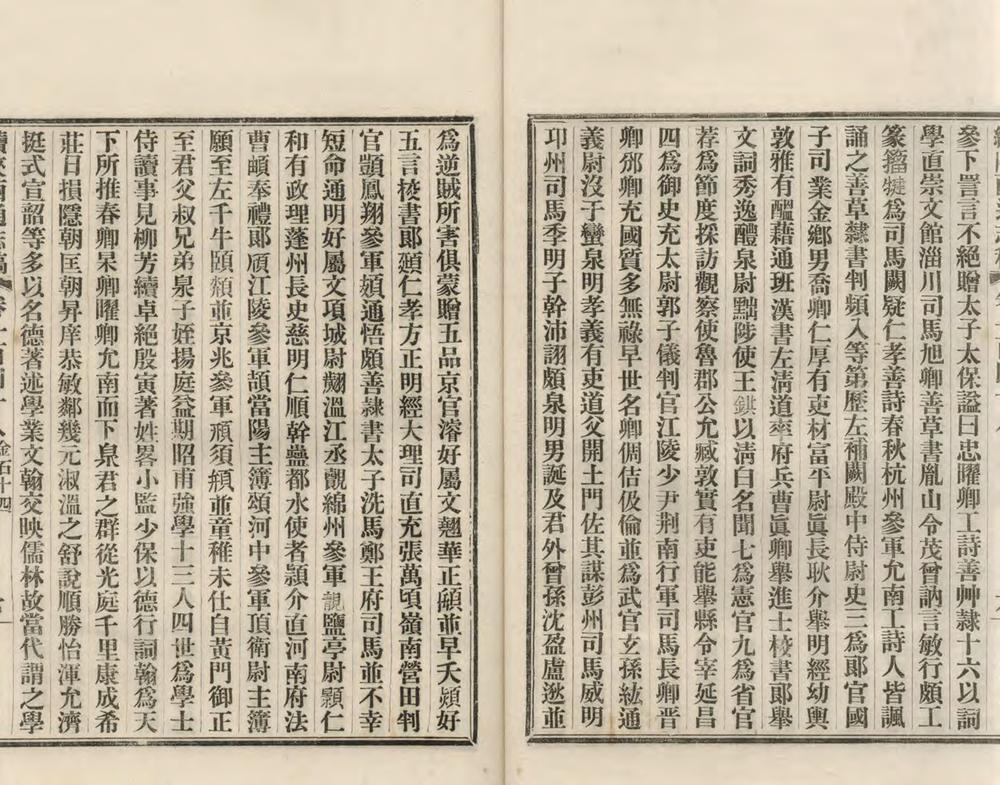 參下詈言不絕贈太子太保諡曰忠曜卿工詩善艸隸十六以詞
學直崇文館淄川司馬旭卿善草書胤山令茂曾訥言敏行頗工
篆籀犍爲司馬闕疑仁孝善詩春秋杭州參軍允南工詩人皆諷
誦之善草隸書判頻入等第歷左補闕殿中侍尉史三爲郎官國
子司業金鄉男喬卿仁厚有吏材富平尉眞長耿介舉明經幼輿
敦雅有醞藉通班漢書左淸道率府兵曹眞卿舉進士校書郎舉
文詞秀逸醴泉尉黜陟使王鉷以淸白名聞七爲憲官九爲省官
荐爲節度採訪觀察使魯郡公允臧敦實有吏能舉縣令宰延昌
四爲御史充太尉郭子儀判官江陵少尹荆南行軍司馬長卿晋
卿邠卿充國質多無祿早世名卿倜佶伋倫並爲武官玄孫紘通
義尉沒于蠻泉明孝義有吏道父開土門佐其謀彭州司馬威明
邛州司馬季明子幹沛詡頗泉明男誕及君外曾孫沈盈盧逖並
爲逆賊所害俱蒙贈五品京官濬好屬文翹華正頔並早夭熲好
五言校書郎頲仁孝方正明經大理司直充張萬頃嶺南營田判
官顗鳳翔參軍頍通悟頗善隷書太子洗馬鄭王府司馬並不幸
短命通明好屬文項城尉翽溫江丞覿綿州參軍靚鹽亭尉顥仁
和有政理蓬州長史慈明仁順幹蠱都水使者頴介直河南府法
曹頔奉禮郎頎江陵參軍頡當陽主簿頌河中參軍頂衛尉主簿
願至左千牛頤頮並京兆參軍頑須頫並童稚未仕自黃門御正
至君父叔兄弟泉子姪揚庭益期昭甫强學十三人四世爲學士
侍讀事見柳芳續卓絕殷寅著姓畧小監少保以德行詞翰爲天
下所推春卿杲卿曜卿允南而下泉君之群從光庭千里康成希
莊日損隱朝匡朝昇庠恭敏鄰幾元淑溫之舒說順勝怡渾允濟
挺式宣韶等多以名德著述學業文翰交映儒林故當代謂之學